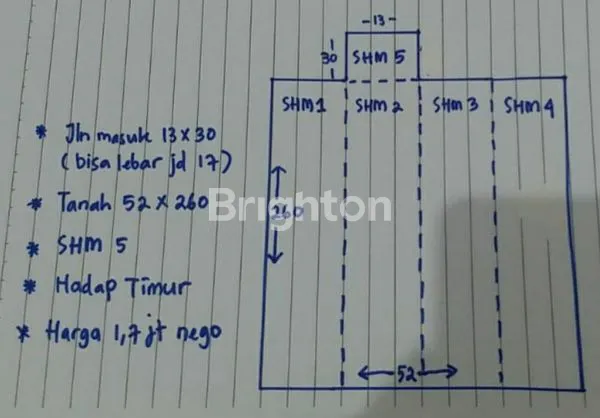 13
30
SHM 5
SHM 1
SHM 2
SHM 3
SHM 4
* Jln masuk 13 x 30
(bisa lebar jd 17)
* Tanah 52 x 260
* SHM 5
* Hadap Timur
* Harga 1,7 jt nego
260
52
Brighton